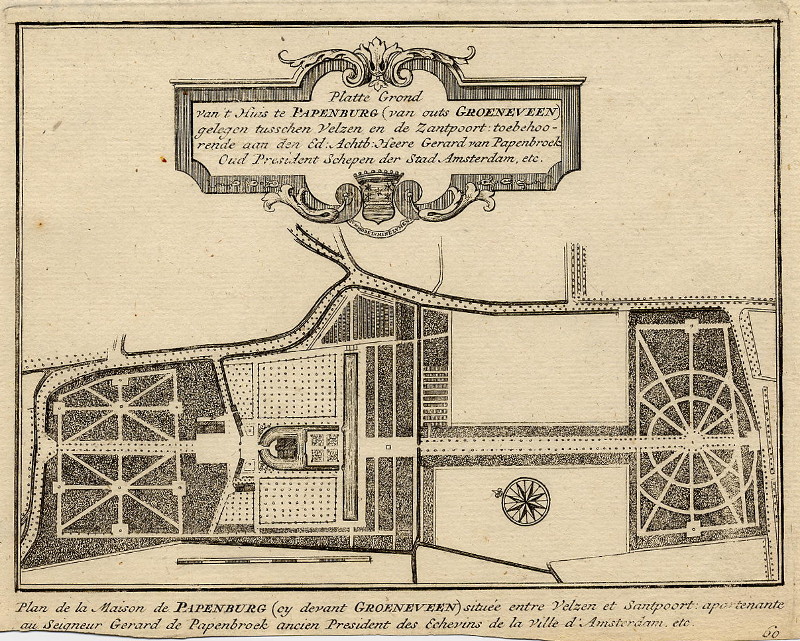 Platte Grond
van 't Huis te PAPENBURG (van outs GROENEVEEN)
gelegen tusschen Velzen en de Zantpoort: toebehoo-
rende aan den Ed: Achtb: Heere Gerard van Papenbroek
Oud President Schepen der Stad Amsterdam, etc.
Plan de la Maison de PAPENBURG (cy devant GROENEVEEN) située entre Velzen et Santpoort: apartenante
au Seigneur Gerard de Papenbroek ancien President des Echevins de la Ville d'Amsterdam, etc.
60